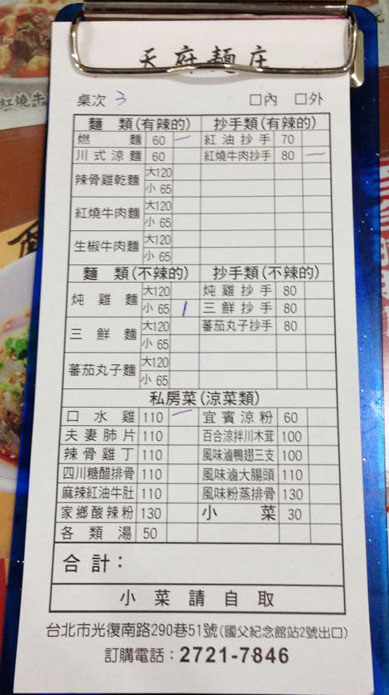 天府麵庄
桌次 3 口內 口外
麵 類(有辣的) 抄手類(有辣的)
燃 麵 60 一 紅油抄手 70
川式涼麵 60 紅燒牛肉抄手 80 一
辣骨雞乾麵 大120
小 65
紅燒牛肉麵 大120
小 65
生椒牛肉麵 大120
小 65
麵 類(不辣的) 抄手類(不辣的)
炖雞麵 大120 炖雞抄手 80
小 65 1 三鮮抄手 80
三鮮麵 大120 蕃茄丸子抄手 80
小 65
蕃茄丸子麵 大120
小 65
私房菜(涼菜類)
口水雞 110 一 宜賓涼粉 60
夫妻肺片 110 百合涼拌川木茸 100
辣骨雞丁 110 風味滷鴨翅三支 100
四川糖醋排骨 110 風味滷大腸頭 110
麻辣紅油牛肚 110 風味粉蒸排骨 130
家鄉酸辣粉 130 小 菜 30
各類湯 50
合計：
小菜請自取
台北市光復南路290巷51號(國父紀念館站2號出口)
訂購電話：2721-7846
紅燒牛